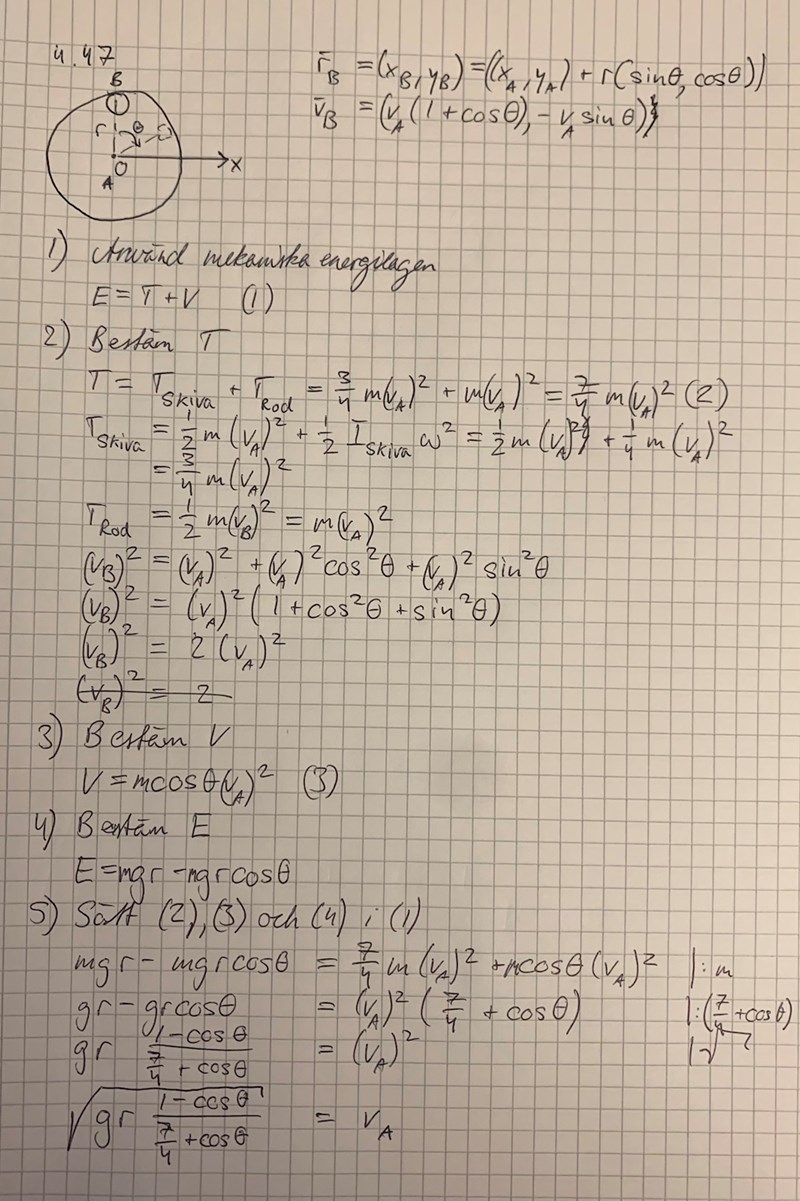 4.47
B
r θ
O
A
x
r̄_B = (x_B, y_B) = ((x_A, y_A) + r(sinθ, cosθ))
v̄_B = (v_A(1 + cosθ), - v_A sin θ)
1) Använd mekaniska energilagen
E = T + V (1)
2) Bestäm T
T = T_Skiva + T_Rod = 3/4 m(v_A)² + m(v_A)² = 7/4 m(v_A)² (2)
T_Skiva = 1/2 m (v_A)² + 1/2 I_Skiva ω² = 1/2 m (v_A)² + 1/4 m (v_A)²
= 3/4 m(v_A)²
T_Rod = 1/2 m(v_B)² = m(v_A)²
(v_B)² = (v_A)² + (v_A)² cos²θ + (v_A)² sin²θ
(v_B)² = (v_A)² (1 + cos²θ + sin²θ)
(v_B)² = 2 (v_A)²
(v_B)² = 2
3) Bestäm V
V = mcosθ(v_A)² (3)
4) Bestäm E
E = mgr - mgrcosθ
5) Sätt (2), (3) och (4) i (1)
mgr - mgrcosθ = 7/4 m (v_A)² + mcosθ (v_A)² |: m
gr - grcosθ = (v_A)² (7/4 + cosθ) |: (7/4 + cosθ)
gr (1-cosθ)/(7/4 + cosθ) = (v_A)² |√
√(gr (1-cosθ)/(7/4 + cosθ)) = v_A